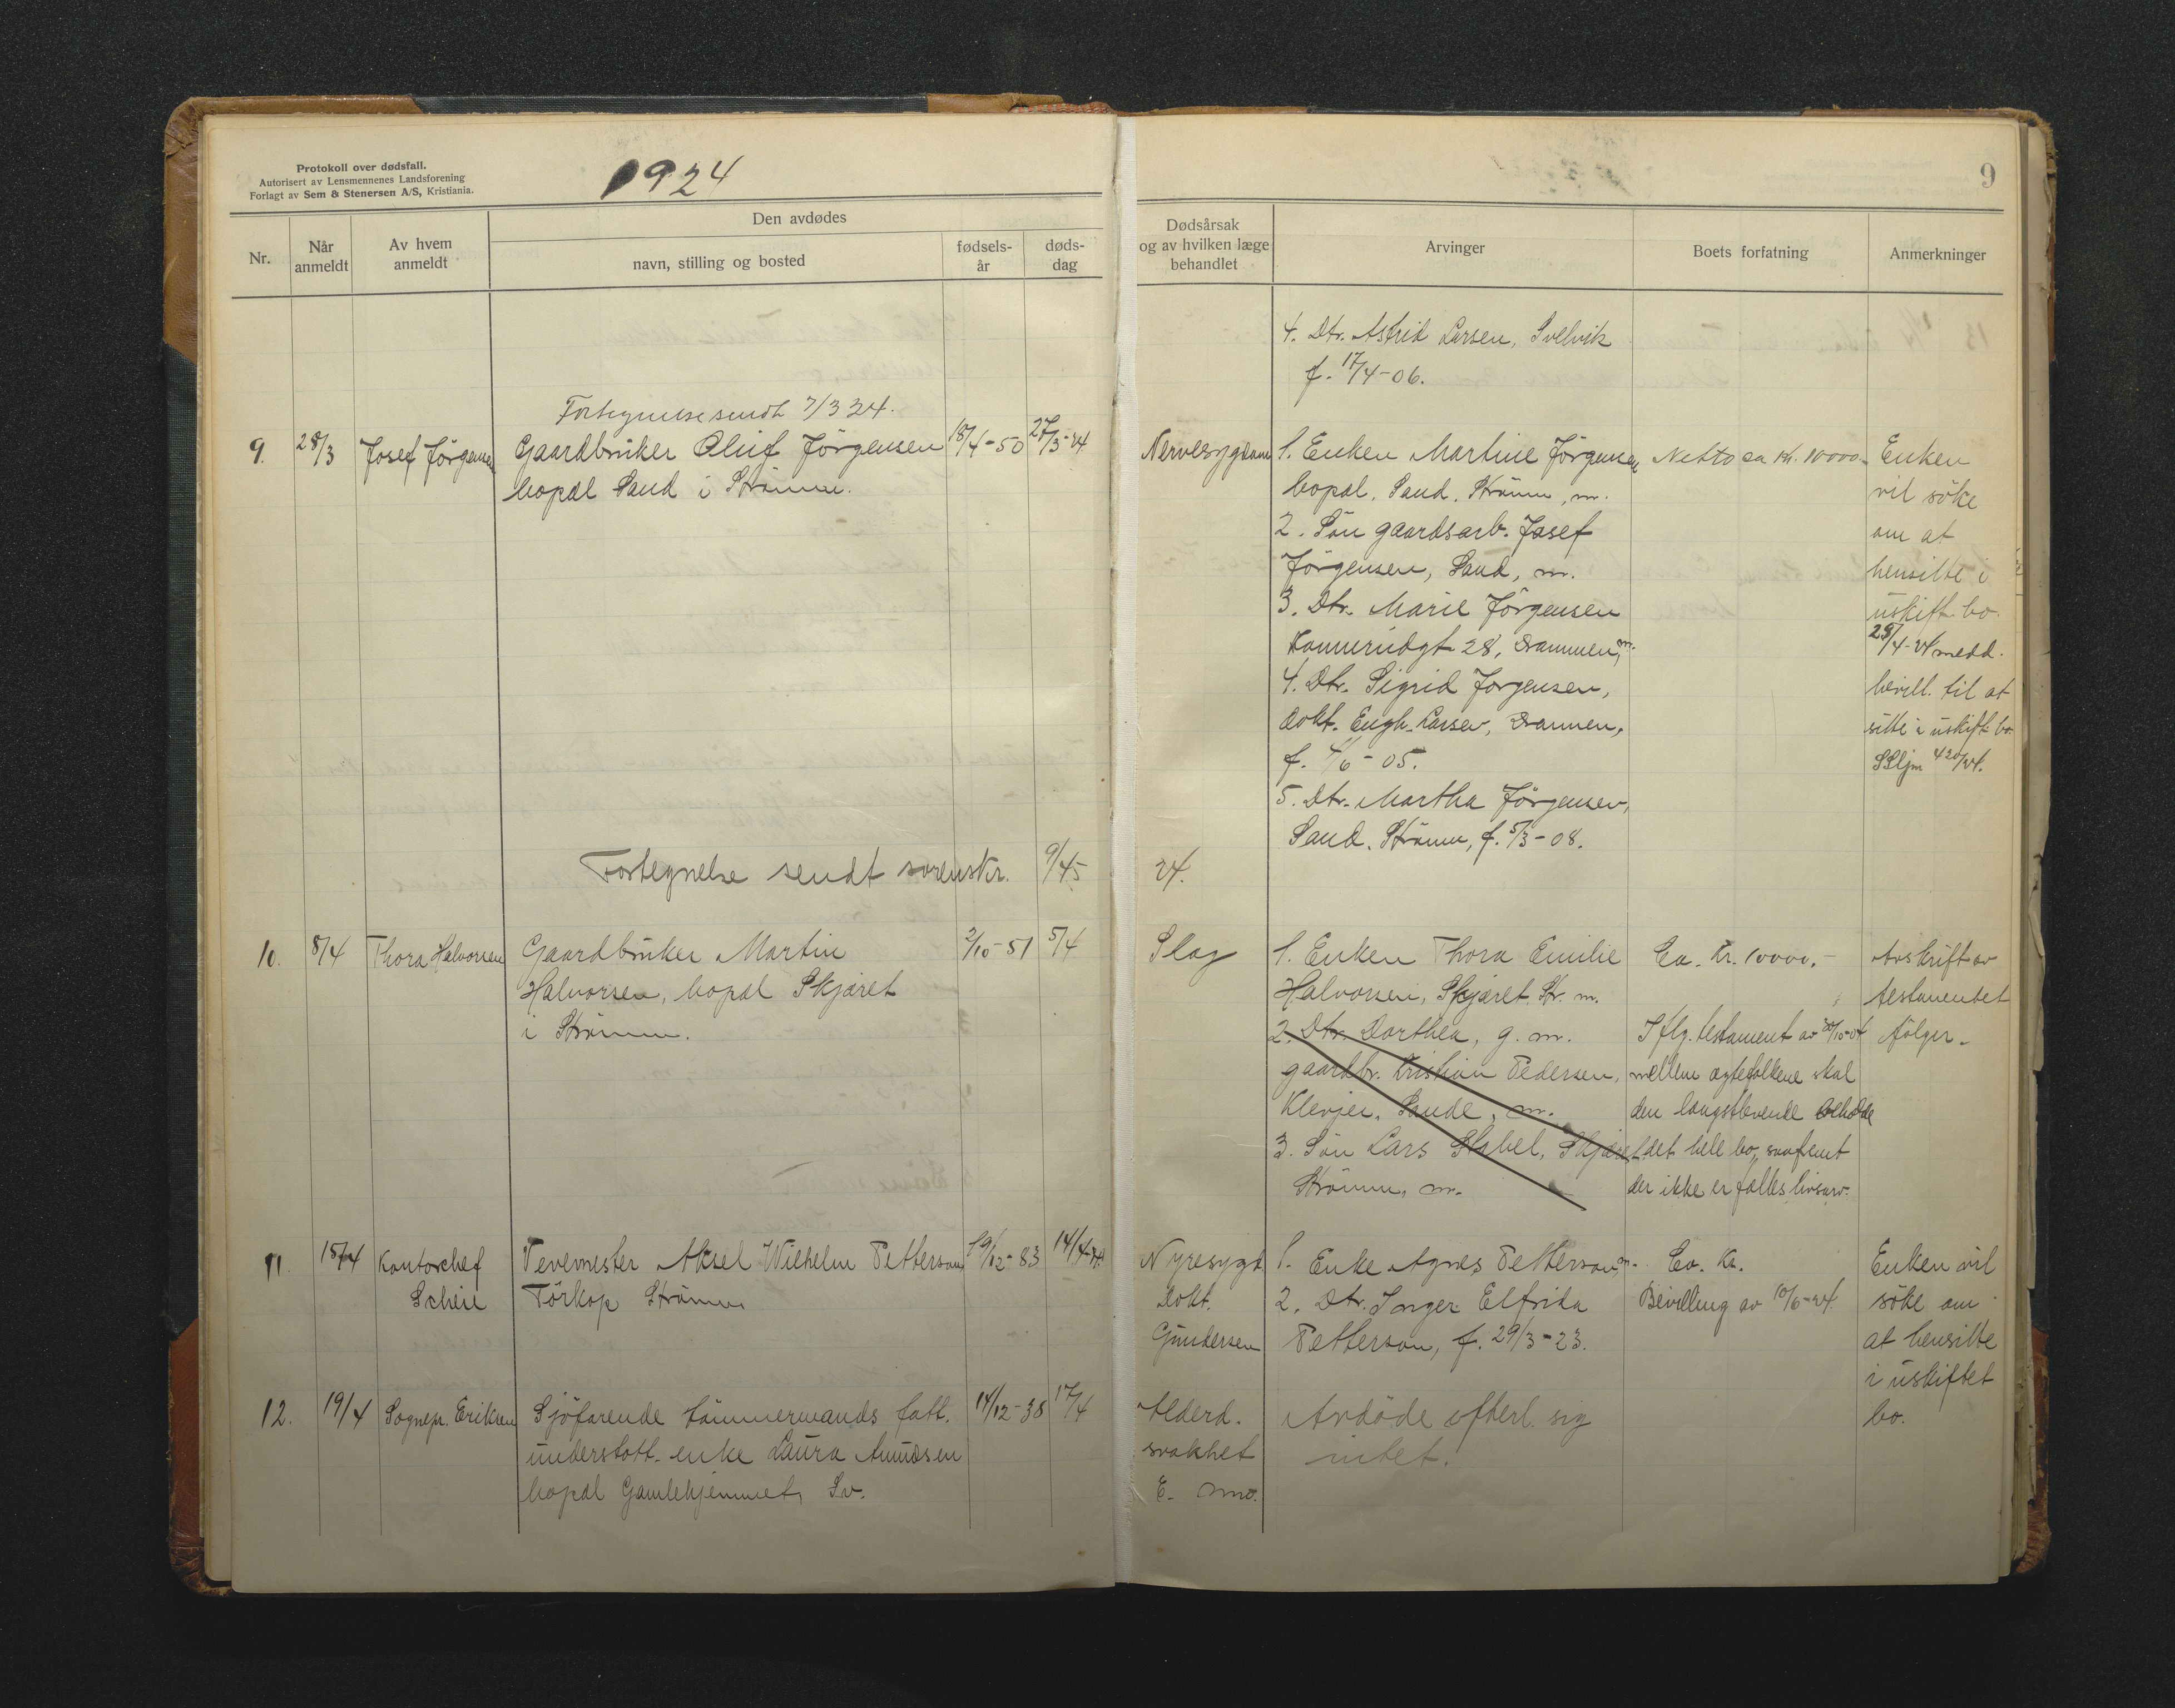 Protokoll over dødsfall.
Autorisert av Lensmennenes Landsforening
Forlagt av Sem & Stenersen A/S, Kristiania.
1924
Nr.
Når anmeldt
Av hvem anmeldt
Den avdødes
navn, stilling og bosted
fødsels-år
døds-dag
Fortegnelse sendt 7/3 24.
9. 28/3 Josef Jörgensen Gaardbruker Oluf Jörgensen 18/4-50 27/3-24
bopæl Sand i Strömm.
Fortegnelse sendt sorenskr. 9/45
10. 8/4 Thora Halvorsen Gaardbruker Martin 2/10-51 5/4
Halvorsen, bopæl Skjæret
i Strömm.
11. 15/4 Kontorchef Vevemester Aksel Wilhelm Petterson 19/12-83 14/4-24
Scheie Törkop Strömm
12. 19/4 Sognepr. Eriksen Sjöfarende tömmermands fatt. 14/12-38 17/4
understött. enke Laura Amundsen
bopæl Gamlehjemmet, Sv.
9
Dødsårsak og av hvilken læge behandlet
Arvinger
Boets forfatning
Anmerkninger
4. Dtr. Astrid Larsen, Svelvik
f. 17/4-06.
Nervesygdom 1. Enken Martine Jörgensen Netto ca kr. 10000.- Enken
bopæl. Sand. Strömm, m. vil söke
2. Sön gaardsarb. Josef om at
Jörgensen, Sand, m. hensitte i
3. Dtr. Marie Jörgensen uskift. bo.
Konnerudgt 28, Drammen, m. 29/4-24 medd.
4. Dtr. Sigrid Jorgensen, bevill. til at
dokt. Engh-Larsen, Drammen, sitte i uskift bo
f. 4/6-05. SSljm 420/24.
5. Dtr. Martha Jörgensen,
Sand. Strömm, f. 5/3-08.
24.
Slag 1. Enken Thora Emilie Ca. kr. 10000.- Avskrift av
Halvorsen, Skjæret. Str. m. testamentet
2. Dtr. Dorthea, g. m. I flg. testament av 20/10-04 fölger.
gaardbr. Kristian Pedersen, mellem ægtefolkene skal
Klevjer. Sande, m. den længstlevende beholde
3. Sön Lars Stabel, Skjæret det hele bo, saafremt
Strömm, m. der ikke er fælles livsarv.
Nyresygd. 1. Enke Agnes Petterson, m. Ca. Kr. Enken vil
Dokt. 2. Dtr. Inger Elfrida Bevilling av 10/6-24. söke om
Gundersen Petterson, f. 29/3-23. at hensitte
i uskiftet
bo.
Alderd. Avdöde efterl. sig
svakhet intet.
E. Smo.